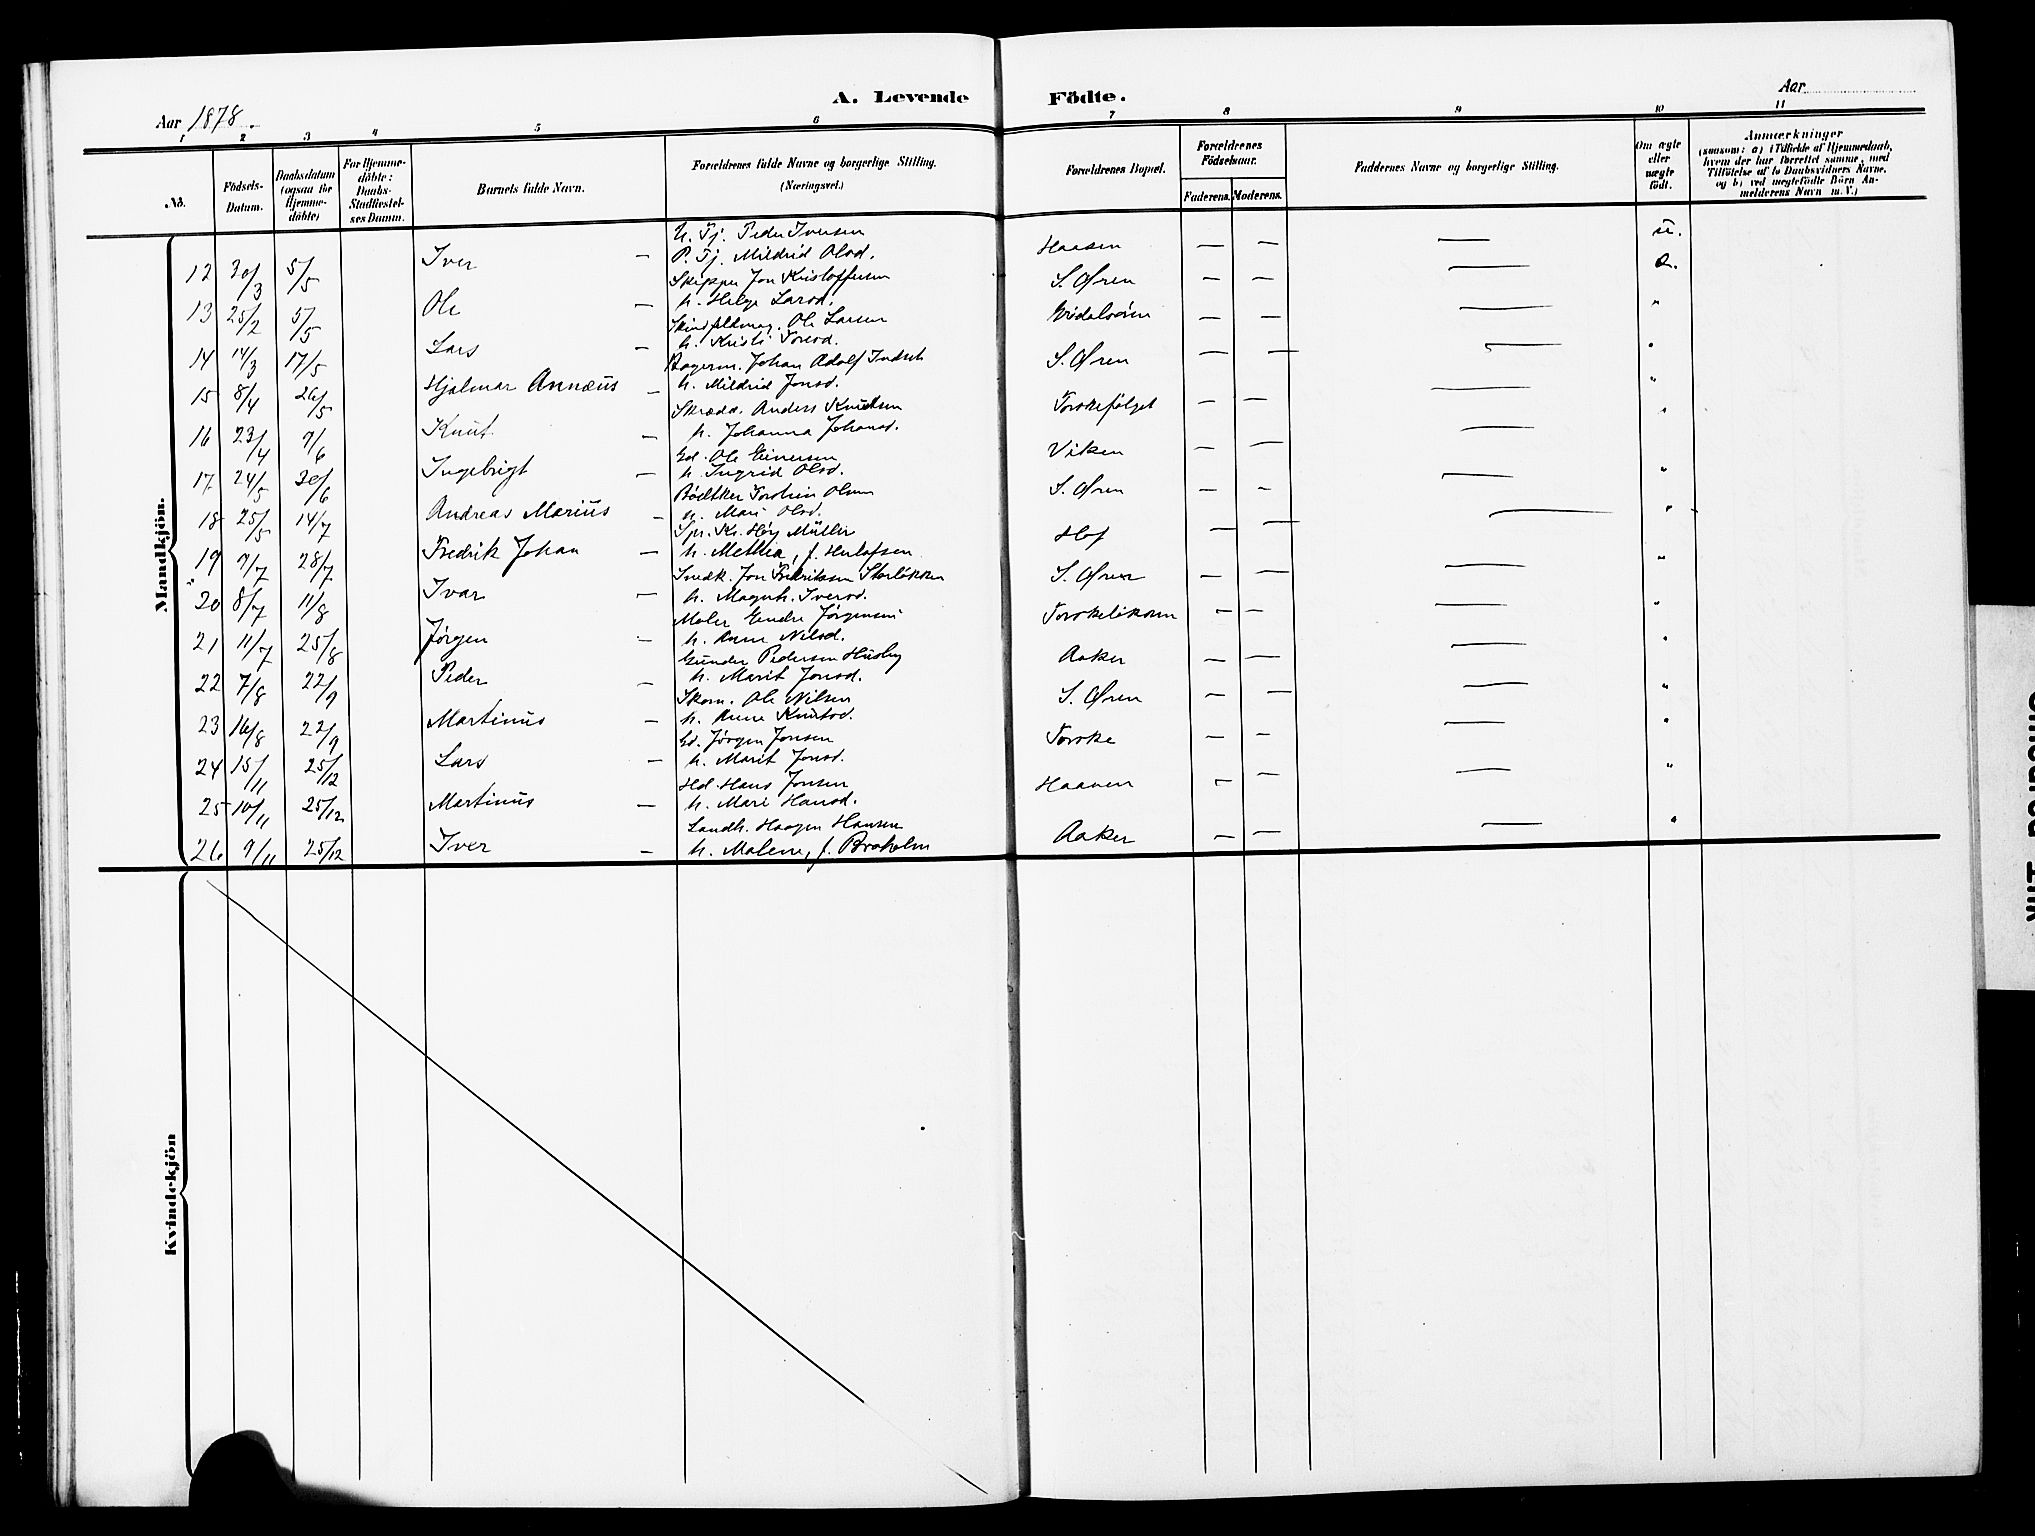 A. Levende Födte.
Aar 1878.
Aar
1 2 3 4 5 6 7 8 9 10 11
No.
Födsels-Datum.
Daabsdatum (ogsaa for Hjemme-döbte)
For Hjemme-döbte: Daabs-Stadfæstel-ses Datum.
Barnets fulde Navn.
Forældrenes fulde Navne og borgerlige Stilling. (Næringsvei.)
Forældrenes Bopæl.
Forældrenes Födselsaar.
Faderens. Moderens.
Faddernes Navne og borgerlige Stilling.
Om ægte eller uægte födt.
Anmærkninger
(saasom: a) i Tilfælde af Hjemmedaab, hvem der har forrettet samme, med Tilföielse af to Daabsvidners Navne. og b) ved uægtefödte Börn An-melderens Navn m. V.)
Mandkjön.
U. Tj. Peder Iversen
12 30/3 5/5 Iver — P. Tj. Mildrid Olsd. Haasen — — — u.
Skipper Jon Kristoffersen
13 25/2 5/5 Ole — h. Helga Larsd. S. Øren — — — æ.
Ole Larsen
14 14/3 17/5 Lars — h. Kristi Toresd. — — — "
Bagerm. Johan Adolf Indset
15 8/4 26/5 Hjalmar Annæus — h. Mildrid Jonsd. S. Øren — — — "
Skrædd. Anders Knudsen
16 23/4 9/6 Knut — h. Johanna Johansd. — — — "
Gd. Ole Einersen
17 24/5 30/6 Ingebrigt — h. Ingrid Olsd. Viken — — — "
Bödtker Torstein Olsen
18 25/5 14/7 Andreas Marius — h. Mari Olsd. S. Øren — — — "
Spr. Kr. Høy Müller
19 9/7 28/7 Fredrik Johan — h. Methea, f. Hof — — — "
Snedk. Jon Fredriksen Storløkken
20 8/7 11/8 Ivar — h. Magnh. Iversd. S. Øren — — — "
Maler Endre Jørgensen
21 11/7 25/8 Jørgen — h. Anne Nilsd. — — — "
Gunder Pedersen Husby
22 7/8 22/9 Peder — h. Marit Jonsd. Aaker — — — "
Skom. Ole Nilsen
23 16/8 22/9 Martinus — h. Anne Knutsd. S. Øren — — — "
Gd. Jørgen Jonsen
24 15/11 25/12 Lars — h. Marit Jonsd. Torske — — — "
Hd. Hans Jonsen
25 10/11 25/12 Martinus — h. Mari Hansd. Haaven — — — "
Landh. Haagen Hansen
26 9/11 25/12 Iver — h. Malene, f. Broholm Aaker — — — "
Kvindekjön